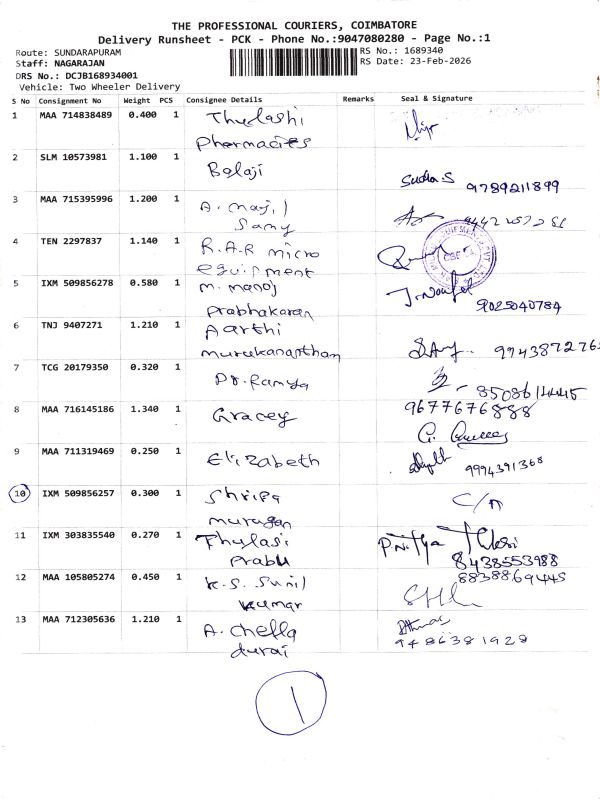 THE PROFESSIONAL COURIERS, COIMBATORE
Delivery Runsheet - PCK - Phone No.:9047080280 - Page No.:1
Route: SUNDARAPURAM
RS No.: 1689340
Staff: NAGARAJAN
RS Date: 23-Feb-2026
DRS No.: DCJB168934001
Vehicle: Two Wheeler Delivery
S No Consignment No Weight PCS Consignee Details Remarks Seal & Signature
1 MAA 714838489 0.400 1 Thulashi
Pharmacies
2 SLM 10573981 1.100 1 Balaji
Sudha S 9789211899
3 MAA 715395996 1.200 1 A. Majil
Samy
4 TEN 2297837 1.140 1 R.A.R micro
equipment
5 IXM 509856278 0.580 1 M. Manoj
Prabhakaran
J. Noufel
9025040784
6 TNJ 9407271 1.210 1 Aarthi
murukananthan
994387276
7 TCG 20179350 0.320 1 Dr. Ramya
8508614445
8 MAA 716145186 1.340 1 Gracey 9677676888
9 MAA 711319469 0.250 1 Elizabeth
9994391368
10 IXM 509856257 0.300 1 Shripa
murugan
C/n
11 IXM 303835540 0.270 1 Thulasi
Prabu
Nitya Tulasi
8438553988
12 MAA 105805274 0.450 1 K.S. Sunil
Kumar
8838869445
13 MAA 712305636 1.210 1 A. Chella
durai
9486381928
1